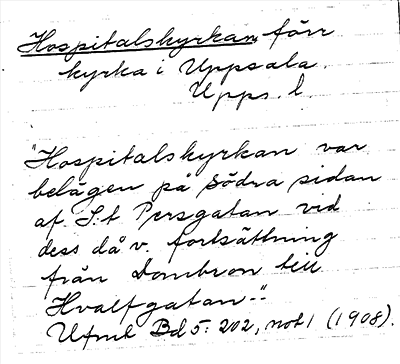 Hospitalskyrkan, förr
kyrka i Uppsala.
Upps. l.
"Hospitalskyrkan var
belägen på södra sidan
af S:t Persgatan vid
dess då v. fortsättning
från Dombron till
Hvalfgatan."
Ufmt Bd 5: 202, not 1 (1908).